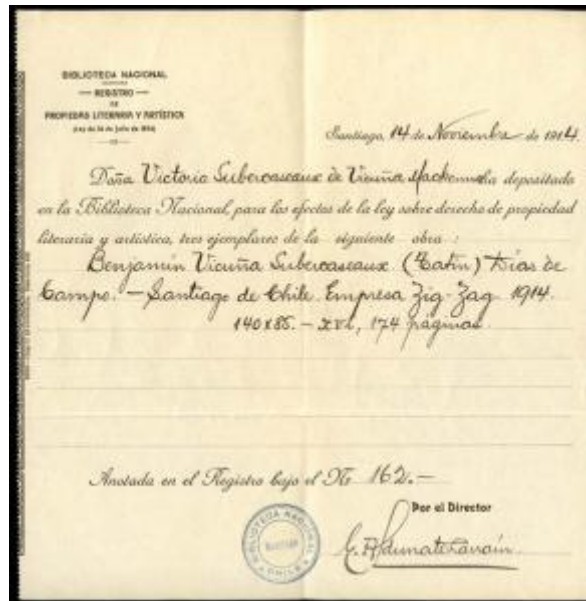 BIBLIOTECA NACIONAL
REGISTRO
DE
PROPIEDAD LITERARIA Y ARTÍSTICA
(Ley de 24 de Julio de 1834)
Santiago, 14 de Noviembre de 1914.
Doña Victoria Subercaseaux de Vicuña Mackenna ha depositado
en la Biblioteca Nacional, para los efectos de la ley sobre derecho de propiedad
literaria y artística, tres ejemplares de la siguiente obra:
Benjamín Vicuña Subercaseaux (Tatín) Días de
Campo. — Santiago de Chile. Empresa Zig-Zag 1914.
140 x 85. — XVI, 174 páginas.
Anotada en el Registro bajo el No 162. —
Por el Director
BIBLIOTECA NACIONAL
CHILE